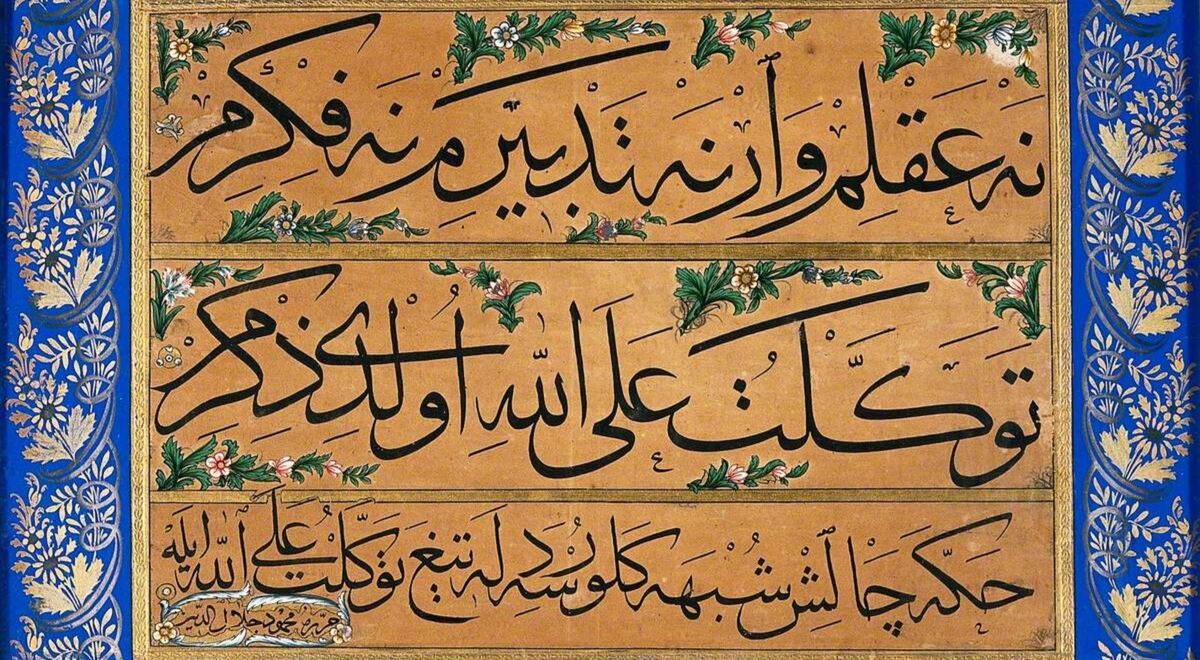 نه عقلم وار نه تدبيرم نه فكرم
توكّلت على الله اولدى ذكرم
حكّه چالش شبهه كلورسه رد له تيغ توكّلت على الله ايله
حرره محمود جلال الدين